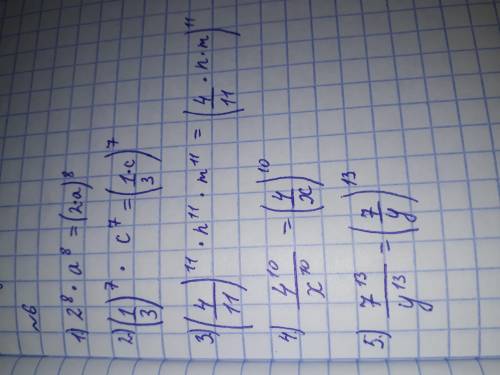 №6
1) 2⁸ · a⁸ = (2·a)⁸
2) (1/3)⁷ · c⁷ = (1/3 · c)⁷
3) (4/11)¹¹ · n¹¹ · m¹¹ = (4/11 · n · m)¹¹
4) 4¹⁰/x¹⁰ = (4/x)¹⁰
5.) 7¹³/y¹³ = (7/y)¹³